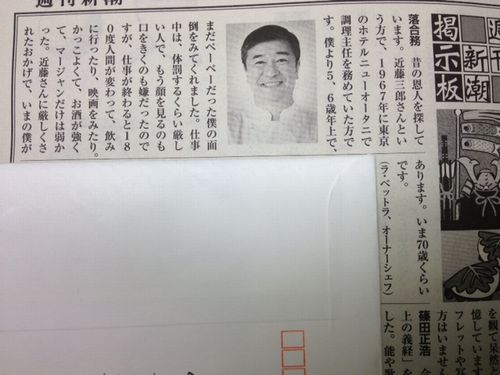 週刊新潮
週刊新潮
掲示板
落合務　昔の恩人を探して
います。近藤三郎さんとい
う方で、1967年に東京
のホテルニューオータニで
調理主任を務めていた方で
す。僕より5、6歳年上で、
まだペーペーだった僕の面
倒をみてくれました。仕事
中は、体罰するくらい厳し
い人で、もう顔を見るのも
口をきくのも嫌だったので
すが、仕事が終わると18
0度人間が変わって、飲み
に行ったり、映画をみたり。
かっこよくて、お酒が強く
て、マージャンだけは弱か
った。近藤さんに厳しくさ
れたおかげで、いまの僕が
あります。いま70歳くらい
です。
(ラ・ベットラ、オーナーシェフ)
篠田正浩
上の義経」を
した。能や歌
を観て呆
憶しています
フレットや写
方はいません